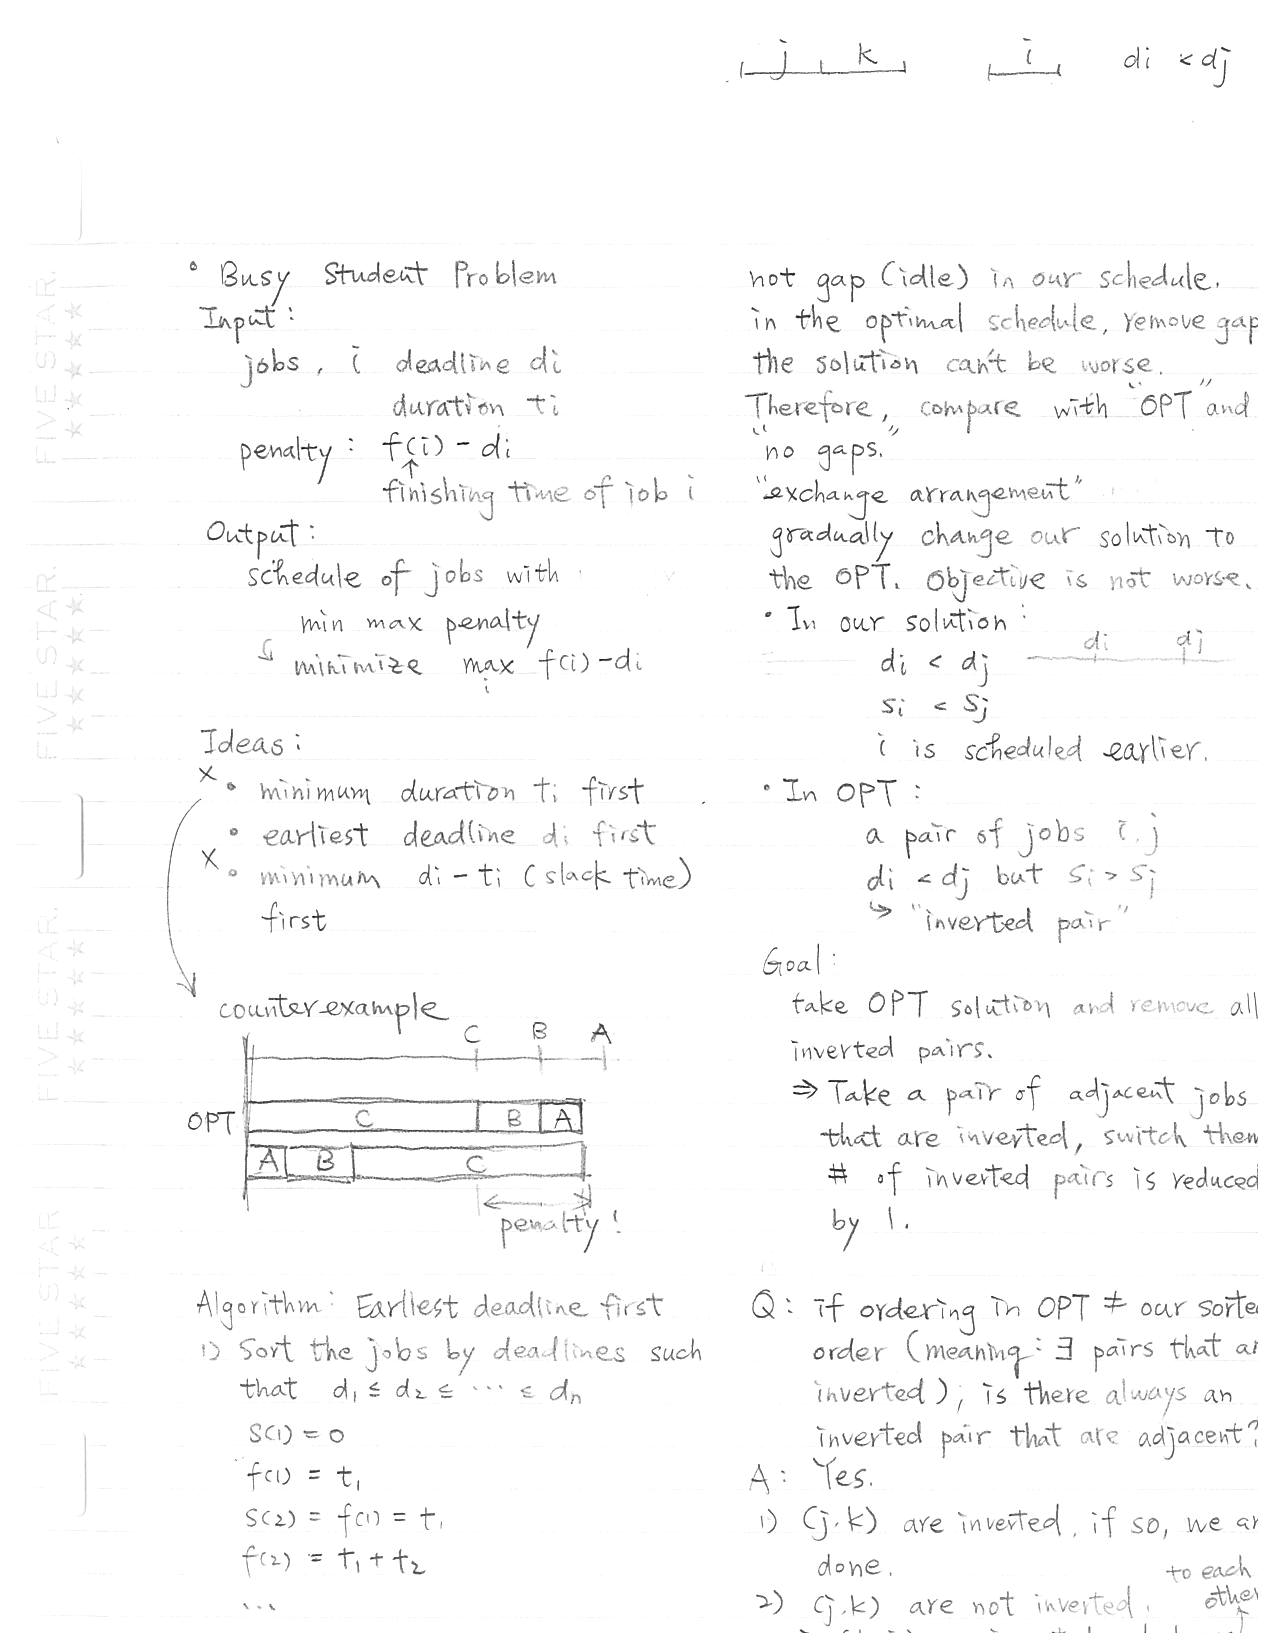 j k i di < dj
• Busy Student Problem
Input:
jobs, i deadline di
duration ti
penalty: f(i) - di
↑
finishing time of job i
Output:
schedule of jobs with
min max penalty
↳ minimize max f(i) - di
i
Ideas:
x • minimum duration ti first
• earliest deadline di first
x • minimum di - ti (slack time)
first
counter example
C B A
OPT C B A
A B C
penalty!
Algorithm: Earliest deadline first
1) Sort the jobs by deadlines such
that d1 ≤ d2 ≤ ... ≤ dn
S(1) = 0
f(1) = t1
S(2) = f(1) = t1
f(2) = t1 + t2
...
not gap (idle) in our schedule.
in the optimal schedule, remove gap
the solution can't be worse.
Therefore, compare with "OPT" and
"no gaps."
"exchange arrangement"
gradually change our solution to
the OPT. Objective is not worse.
• In our solution:
di < dj di dj
si < sj
i is scheduled earlier.
• In OPT:
a pair of jobs i.j
di < dj but si > sj
↳ "inverted pair"
Goal:
take OPT solution and remove all
inverted pairs.
⇒ Take a pair of adjacent jobs
that are inverted, switch them
# of inverted pairs is reduced
by 1.
Q: if ordering in OPT ≠ our sorte
order (meaning: ∃ pairs that ar
inverted), is there always an
inverted pair that are adjacent?
A: Yes.
1) (j.k) are inverted, if so, we ar
done.
to each
2) (j.k) are not inverted. other
FIVE STAR.
FIVE STAR.
FIVE STAR.
FIVE STAR